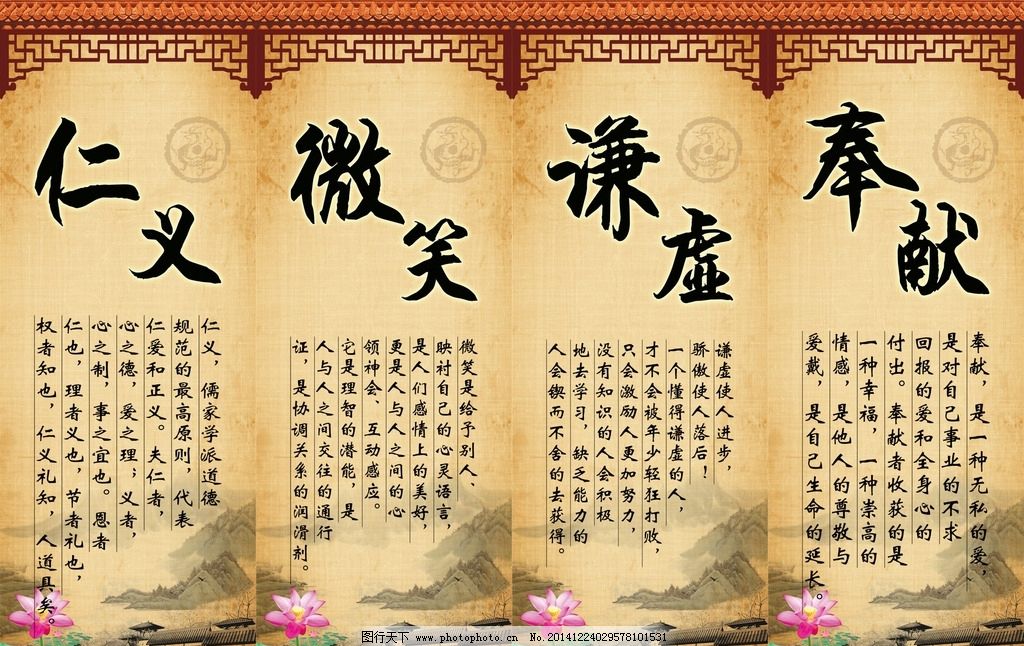 仁义
仁义，儒家学派道德
规范的最高原则，代表
仁爱和正义。夫仁者，
心之德，爱之理；义者，
心之制，事之宜也。恩者
仁也，理者义也，节者礼也，
权者知也，仁义礼知，人道具矣。
微笑
微笑是给予别人、
映衬自己的心灵语言，
是人们感情上的美好，
更是人与人之间的心
领神会、互动感应。
它是理智的潜能，是
人与人之间交往的通行
证，是协调关系的润滑剂。
谦虚
谦虚使人进步，
骄傲使人落后！
一个懂得谦虚的人，
才不会被年少轻狂打败，
只会激励人更加努力，
没有知识的人会积极
地去学习，缺乏能力的
人会锲而不舍的去获得。
奉献
奉献，是一种无私的爱，
是对自己事业的不求
回报的爱和全身心的
付出。奉献者收获的是
一种幸福，一种崇高的
情感，是他人的尊敬与
爱戴，是自己生命的延长。
图行天下 www.photophoto.cn No.20141224029578101531